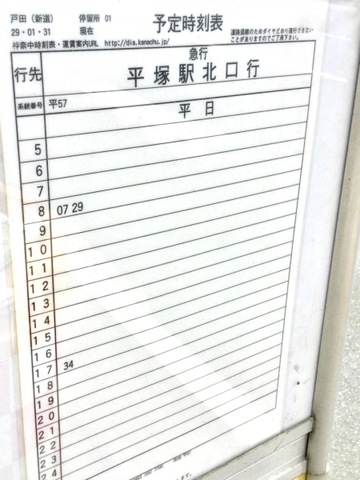 戸田（新道） 停留所 01
29・01・31 現在
神奈中時刻表・運賃案内URL http://dia.kanachu.jp/
予定時刻表
道路混雑のためダイヤどおり運行できない
ことがありますのでご了承下さい。
行先
急行
平塚駅北口行
系統番号 平57
平日
5
6
7
8 07 29
9
10
11
12
13
14
15
16
17 34
18
19
20
21
22
23
24